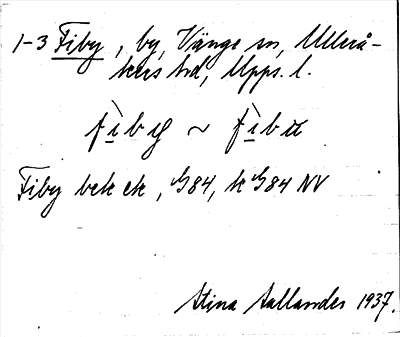 1-3 Fiby, by, Vänge sn, Ullerå-
kers hd, Upps. l.
fìby ~ fìbu
Fiby bek ek, G84, k G84 NV
Stina Sallander 1937.